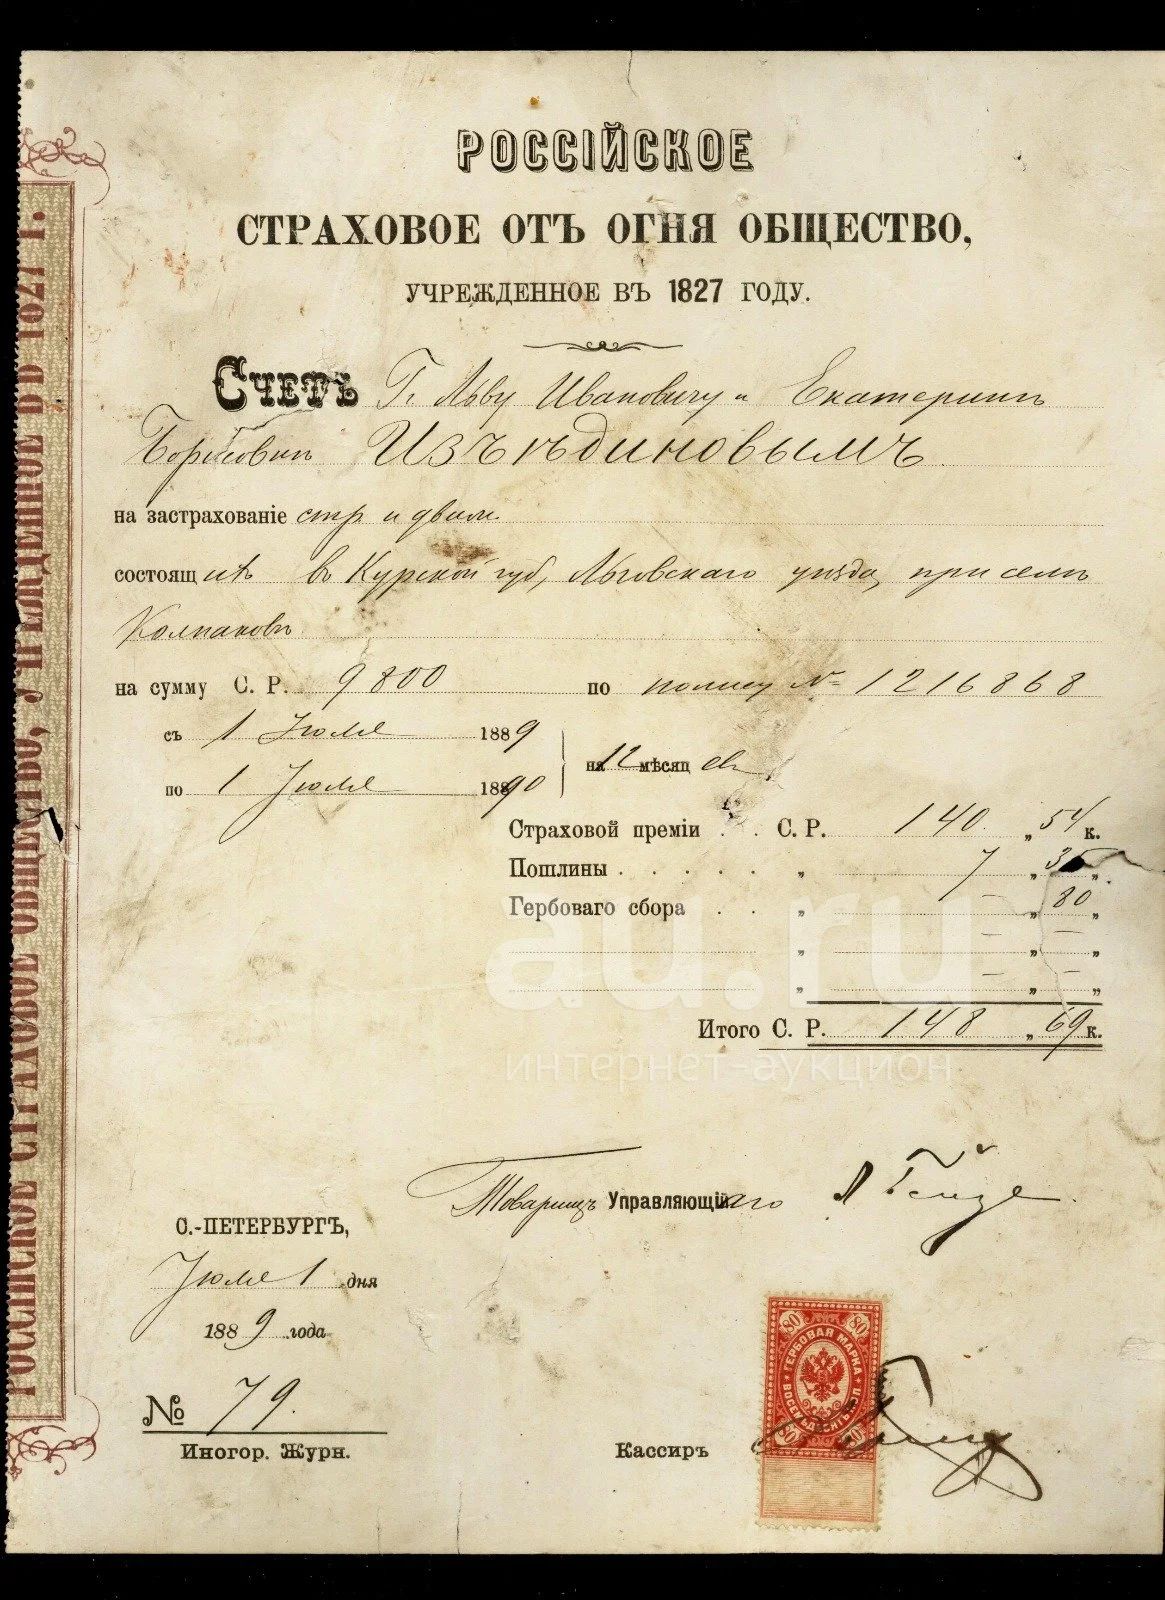 РОССІЙСКОЕ
СТРАХОВОЕ ОТЪ ОГНЯ ОБЩЕСТВО,
УЧРЕЖДЕННОЕ ВЪ 1827 ГОДУ.
Счетъ Г. Льву Ивановичу и Екатеринѣ
Борисовнѣ Изъѣдиновымъ
на застрахованіе стр. и движ.
состоящ ихъ въ Курской губ, Льговскаго уѣзда, при селѣ
Колпаковѣ
на сумму С. Р. 9800 по полису № 1216868
съ 1 Іюля 1889
на 12 мѣсяц евъ
по 1 Іюля 1890
Страховой преміи . . С. Р. 140 „ 54 к.
Пошлины . . . . . „ 7 „ 35 „
Гербоваго сбора . . „ — „ 80 „
„ — „ — „
„ — „ — „
Итого С. Р. 148 „ 69 к.
au.ru
интернет-аукцион
Товарищъ Управляющаго
С.-ПЕТЕРБУРГЪ,
Іюля 1 дня
1889 года
№ 79.
Иногор. Журн.
Кассиръ
80 80
ГЕРБОВАЯ МАРКА
ВОСЕМЬДЕСЯТЪ КОП.
80 80
РОССІЙСКОЕ СТРАХОВОЕ ОБЩЕСТВО, УЧРЕЖДЕННОЕ ВЪ 1827 Г.